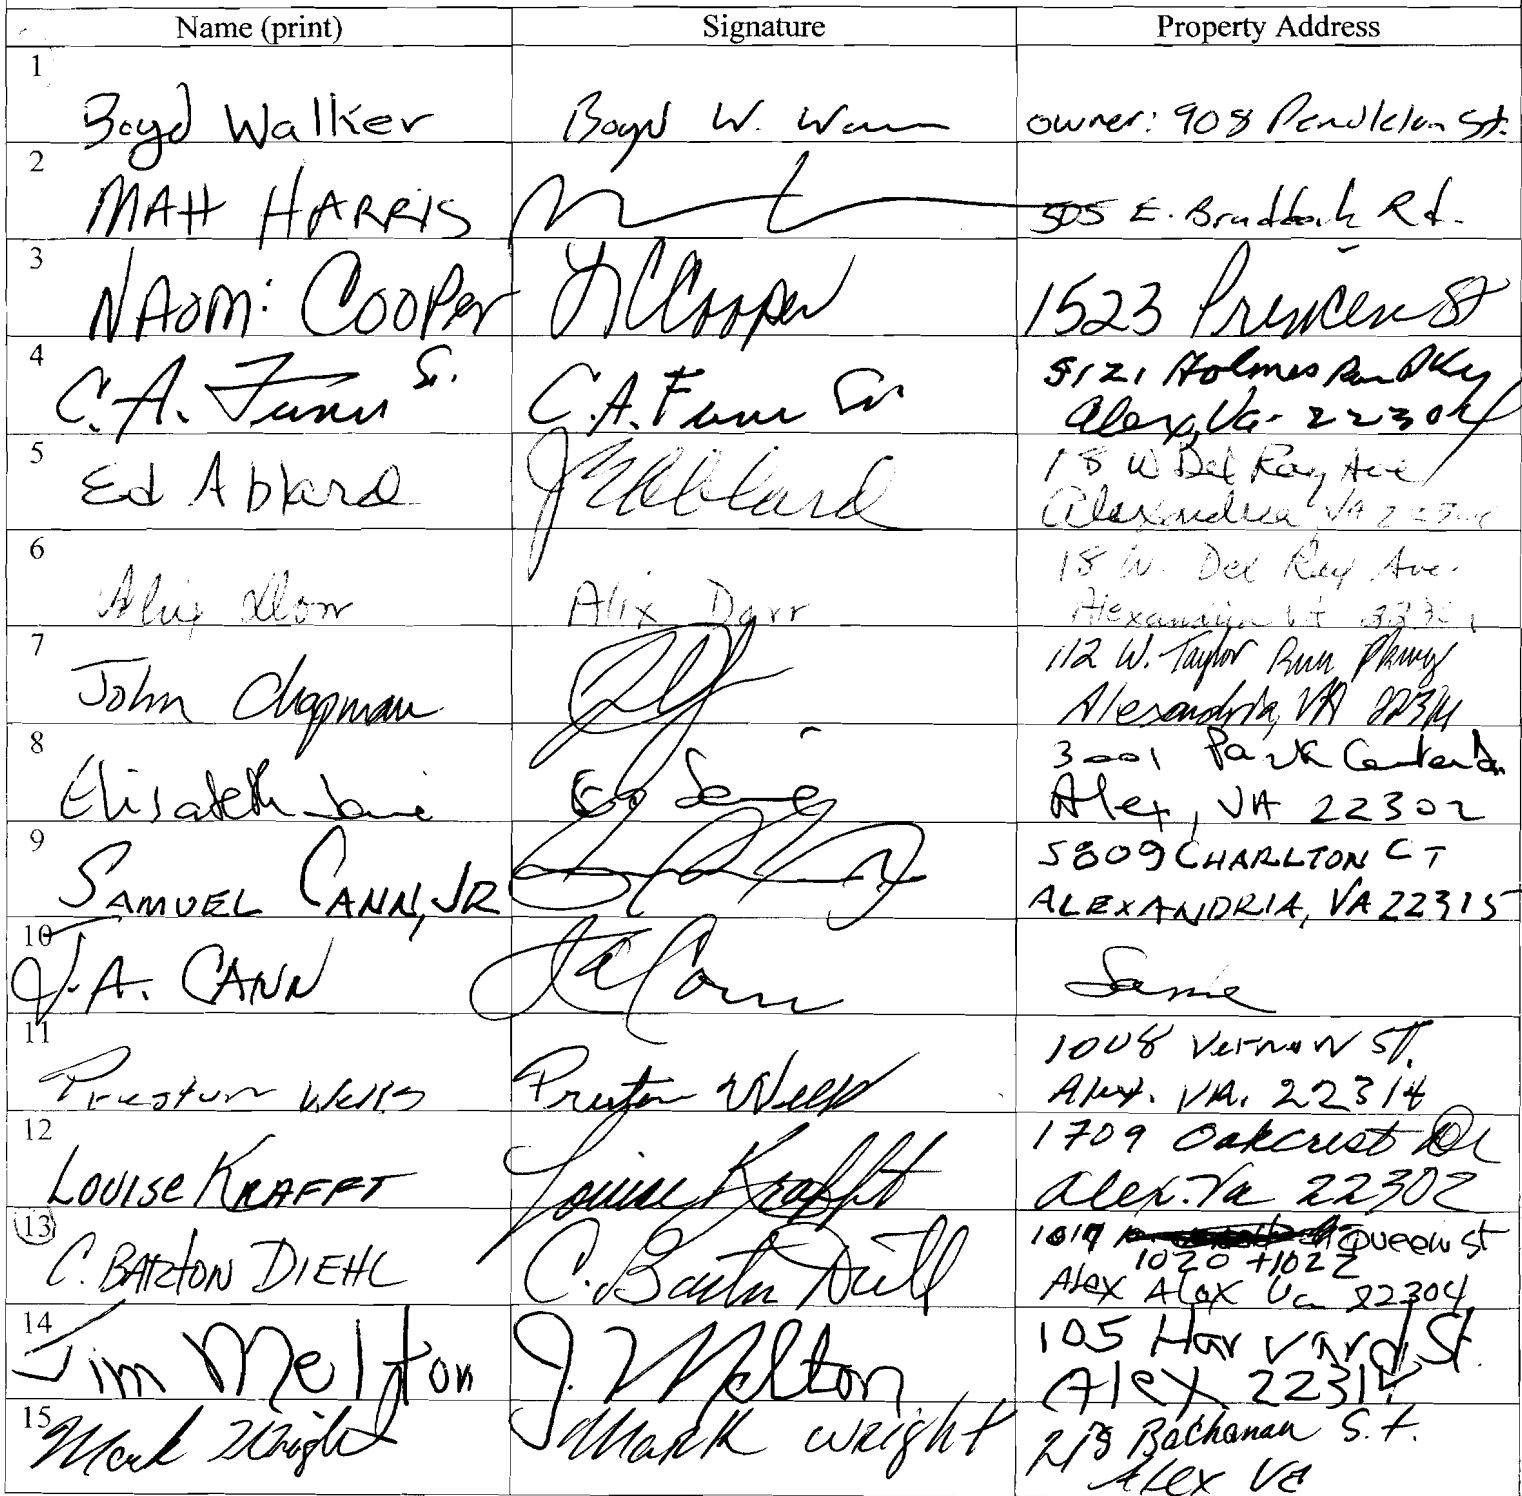 Name (print) Signature Property Address
1 Boyd Walker Boyd W. owner: 908 Pendleton St.
2 MAtt HARRIS 505 E. Braddock Rd.
3 NAOMi COOPer NCCooper 1523 St
4 C.A. Sr. C.A. Sr 5121 Holmes Run Pky
Alex, Va. 22304
5 Ed Ablard Ablard 18 W Del Ray Ave
Alexandria, VA
6 Alix Dorr Alix Dorr 18 W. Del Ray Ave.
Alexandria VA
7 John Chapman 112 W. Taylor Run Pkwy
Alexandria, VA 22314
8 Elisabeth 3001 Park Center Dr.
Alex, VA 22302
9 SAMUEL CANN, JR 5809 CHARLTON CT
ALEXANDRIA, VA 22315
10 J.A. CANN JACann Same
11 Preston Wells Preston Wells 1008 Vernon ST.
Alex. VA. 22314
12 LOUISE KRAFFT Louise Krafft 1709 Oakcrest Dr
Alex. Va 22302
13 C. BARTON DIEHL C. Barton Diehl Queen st
1020 + 1022
Alex Alex Va 22304
14 Jim Melton J. Melton 105 Harvard St.
Alex 22314
15 Mark Wright Mark Wright 218 Bachanan S.t.
Alex Va